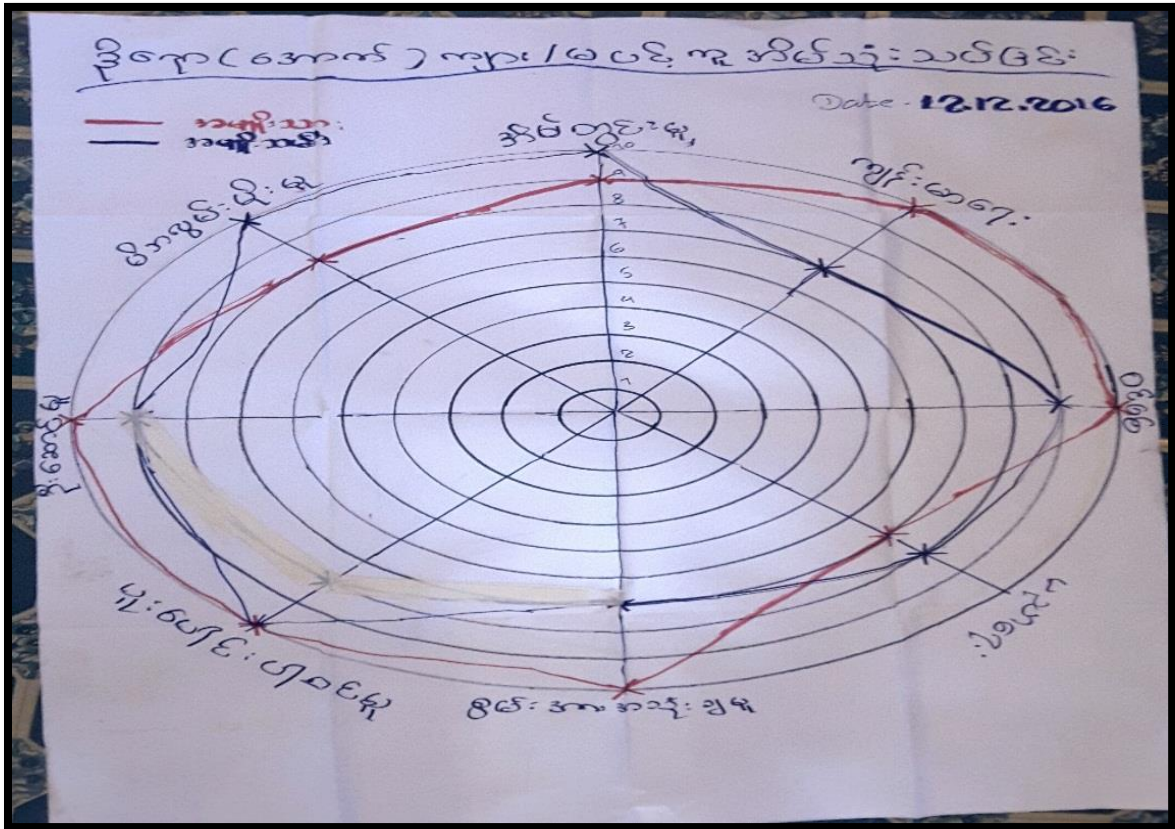 ဒိုနော (အောက်) ကျား/မ ပင့်ကူအိမ်သုံးသပ်ခြင်း
Date - 12.12.2016
အမျိုးသား
အမျိုးသမီး
အိမ်တွင်းမှု
ကျန်းမာရေး
ဝင်ငွေ
ပညာရေး
စွမ်းအားအသုံးချမှု
ပူးပေါင်းပါဝင်မှု
ဦးဆောင်မှု
မိဘလွှမ်းမိုးမှု
10
9
8
7
6
5
4
3
2
1